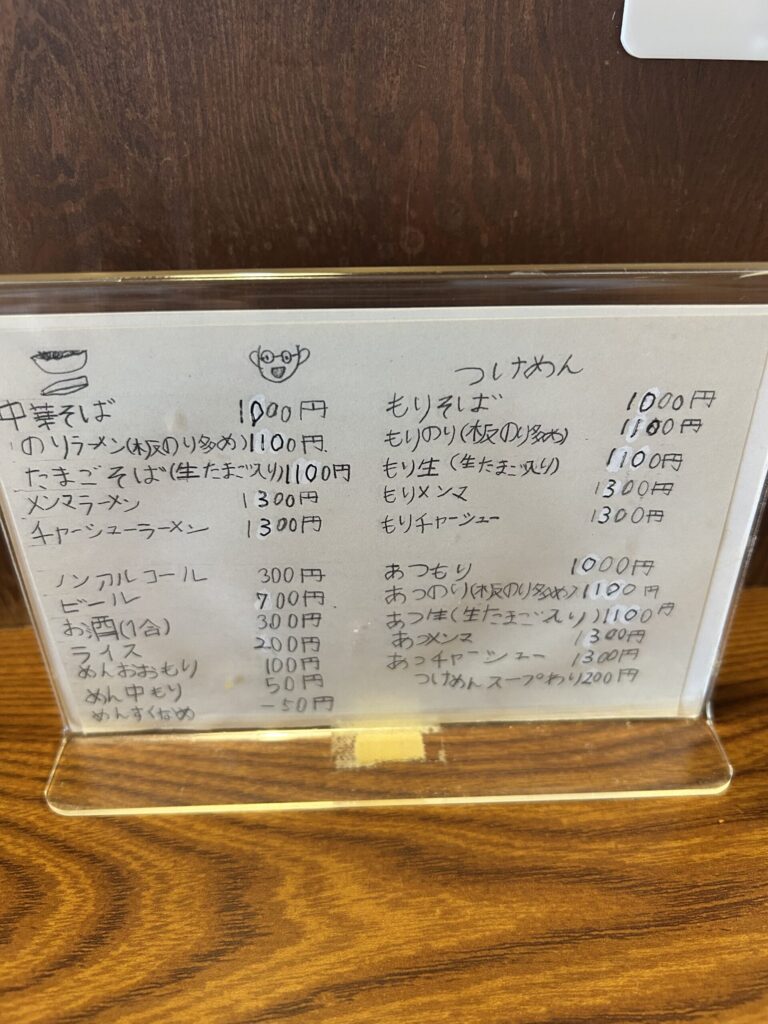 中華そば 1000円
のりラーメン(板のり多め)1100円
たまごそば(生たまご入り)1100円
メンマラーメン 1300円
チャーシューラーメン 1300円
ノンアルコール 300円
ビール 700円
お酒(1合) 300円
ライス 200円
めんおおもり 100円
めん中もり 50円
めんすくなめ -50円
つけめん
もりそば 1000円
もりのり(板のり多め) 1100円
もり生(生たまご入り) 1100円
もりメンマ 1300円
もりチャーシュー 1300円
あつもり 1000円
あつのり(板のり多め)1100円
あつ生(生たまご入り)1100円
あつメンマ 1300円
あつチャーシュー 1300円
つけめんスープわり200円